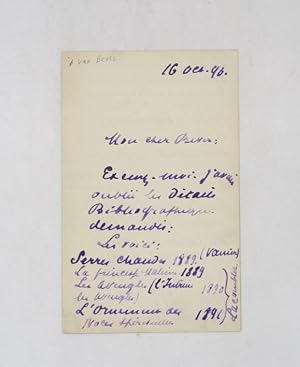 A van Bever
16 Oct. 96.
Mon cher Bever:
Excusez-moi. J'avais
oublié les Détails
Bibliographiques
demandés:
Les voici:
Serres chaudes 1889. (Vanier)
La princesse Maleine 1889
Les Aveugles (L'Intruse 1890
les aveugles)
L'Ornement des 1891
Noces spirituelles
Lacomblez